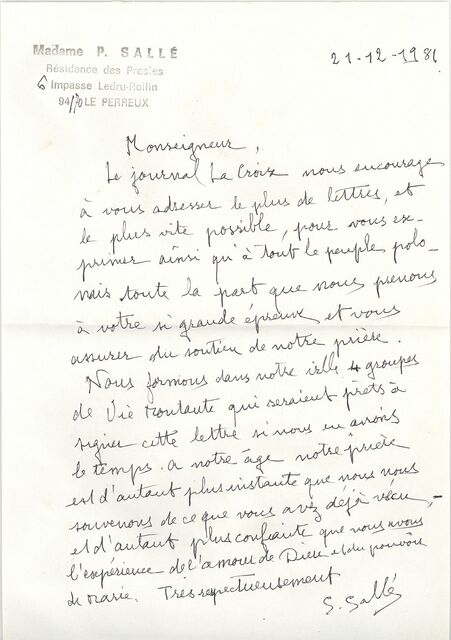 Madame P. SALLÉ
Résidence des Presles
6 Impasse Ledru-Rollin
94170 LE PERREUX
21-12-1981
Monseigneur,
Le journal La Croix nous encourage
à vous adresser le plus de lettres, et
le plus vite possible, pour vous ex-
primer ainsi qu'à tout le peuple polo-
nais toute la part que nous prenons
à votre si grande épreuve, et vous
assurer du soutien de notre prière.
Nous formons dans notre ville 4 groupes
de Vie Montante qui seraient prêts à
signer cette lettre si nous en avions
le temps. A notre âge notre prière
est d'autant plus instante que nous nous
souvenons de ce que vous avez déjà vécu, -
et d'autant plus confiante que nous avons
l'expérience de l'amour de Dieu et du pouvoir
de Marie. Très respectueusement
S. Sallé